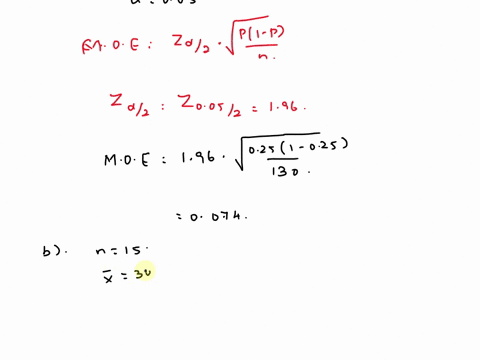 α = 0.05
M.O.E : Zα/2 · √P(1-P)/n.
Zα/2 : Z0.05/2 = 1.96.
M.O.E : 1.96 · √0.25(1-0.25)/130.
= 0.074.
b). n = 15.
x̄ = 30